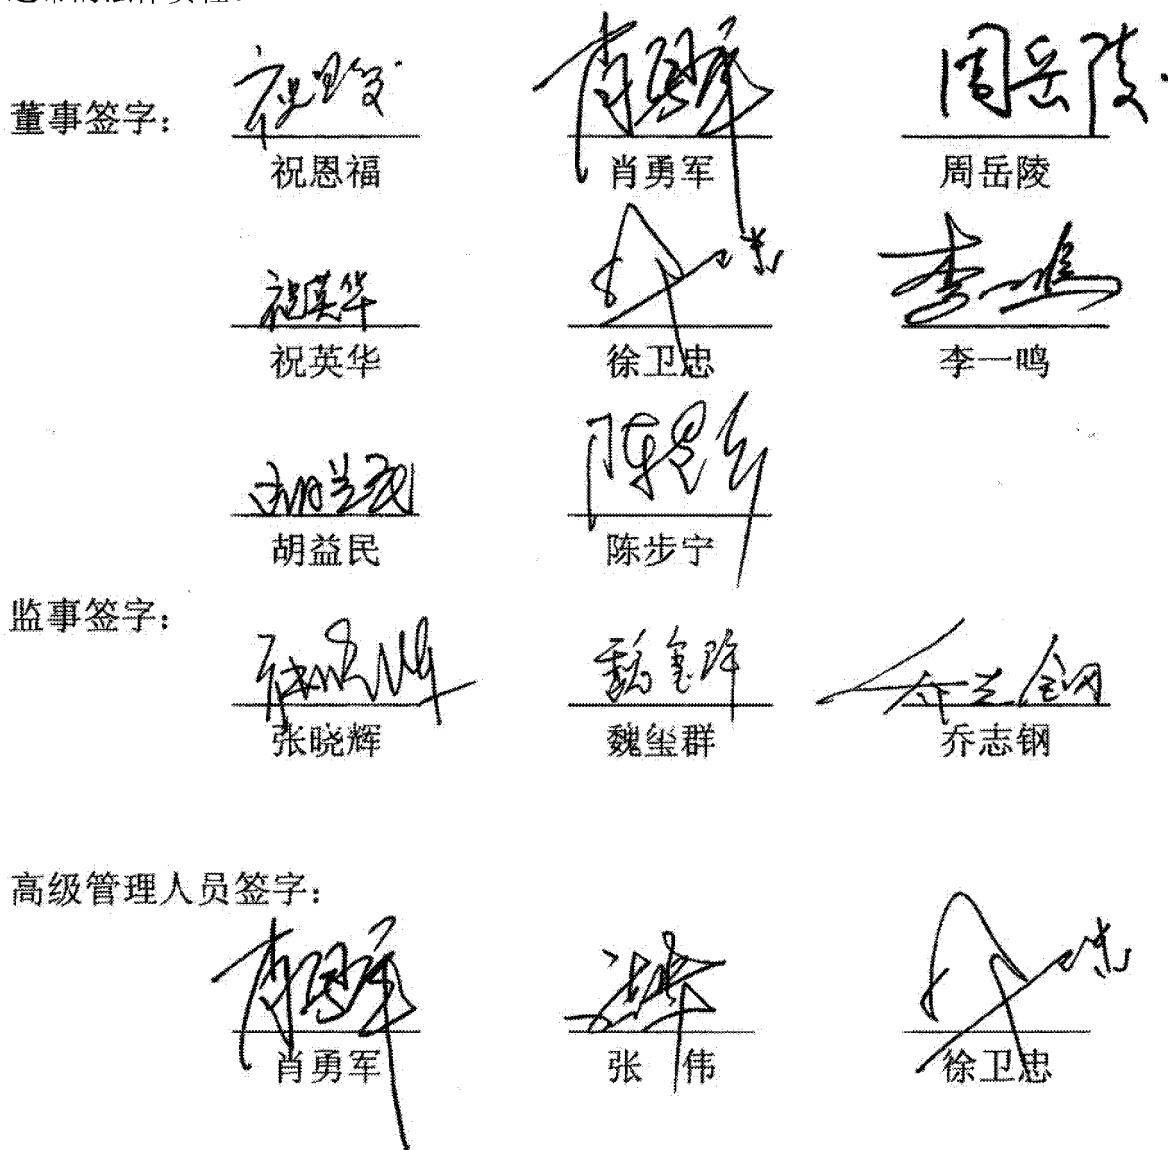 董事签字：
祝恩福 肖勇军 周岳陵
祝英华 徐卫忠 李一鸣
胡益民 陈步宁
监事签字：
张晓辉 魏玺群 乔志钢
高级管理人员签字：
肖勇军 张 伟 徐卫忠